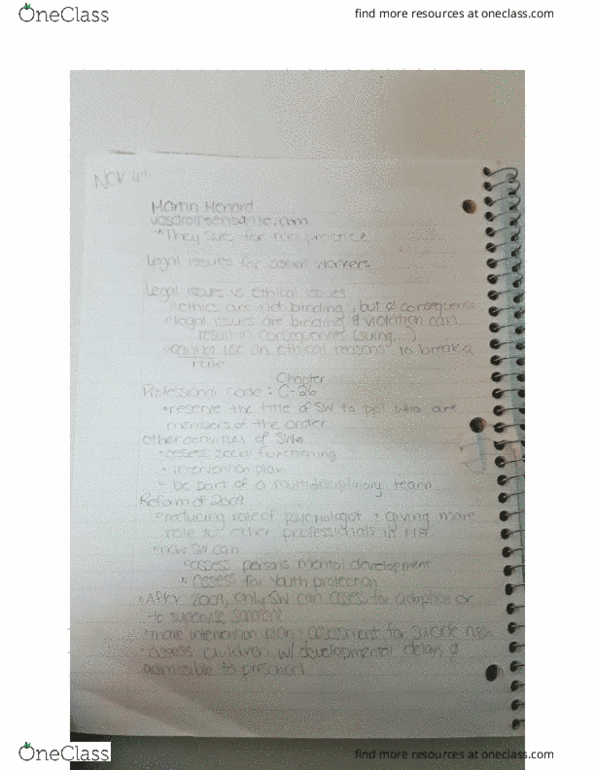 OneClass
find more resources at oneclass.com
Nov 4th
Martin Henard
*They sue for malpractice
Legal issues for social workers
Legal issues vs Ethical issues
ethics are not binding, but ø consequence
legal issues are binding & violation can
result in consequences (suing...)
cannot use an ethical reasons to break a
rule
Chapter
Professional code: C-26
reserve the title of SW to ppl who are
members of the order
other activities of SW
assess social functioning
intervention plan
be part of a multidisciplinary team
Reform of 2009
reducing role of psychologist + giving more
role to other professionals in MH
now SW can
assess persons mental development
assess for youth protection
After 2009, only SW can assess for adoption or
to supervise
more intervention plan + assessment for suicide
assess children w/ developmental delays &
admissible to preschool
OneClass
find more resources at oneclass.com